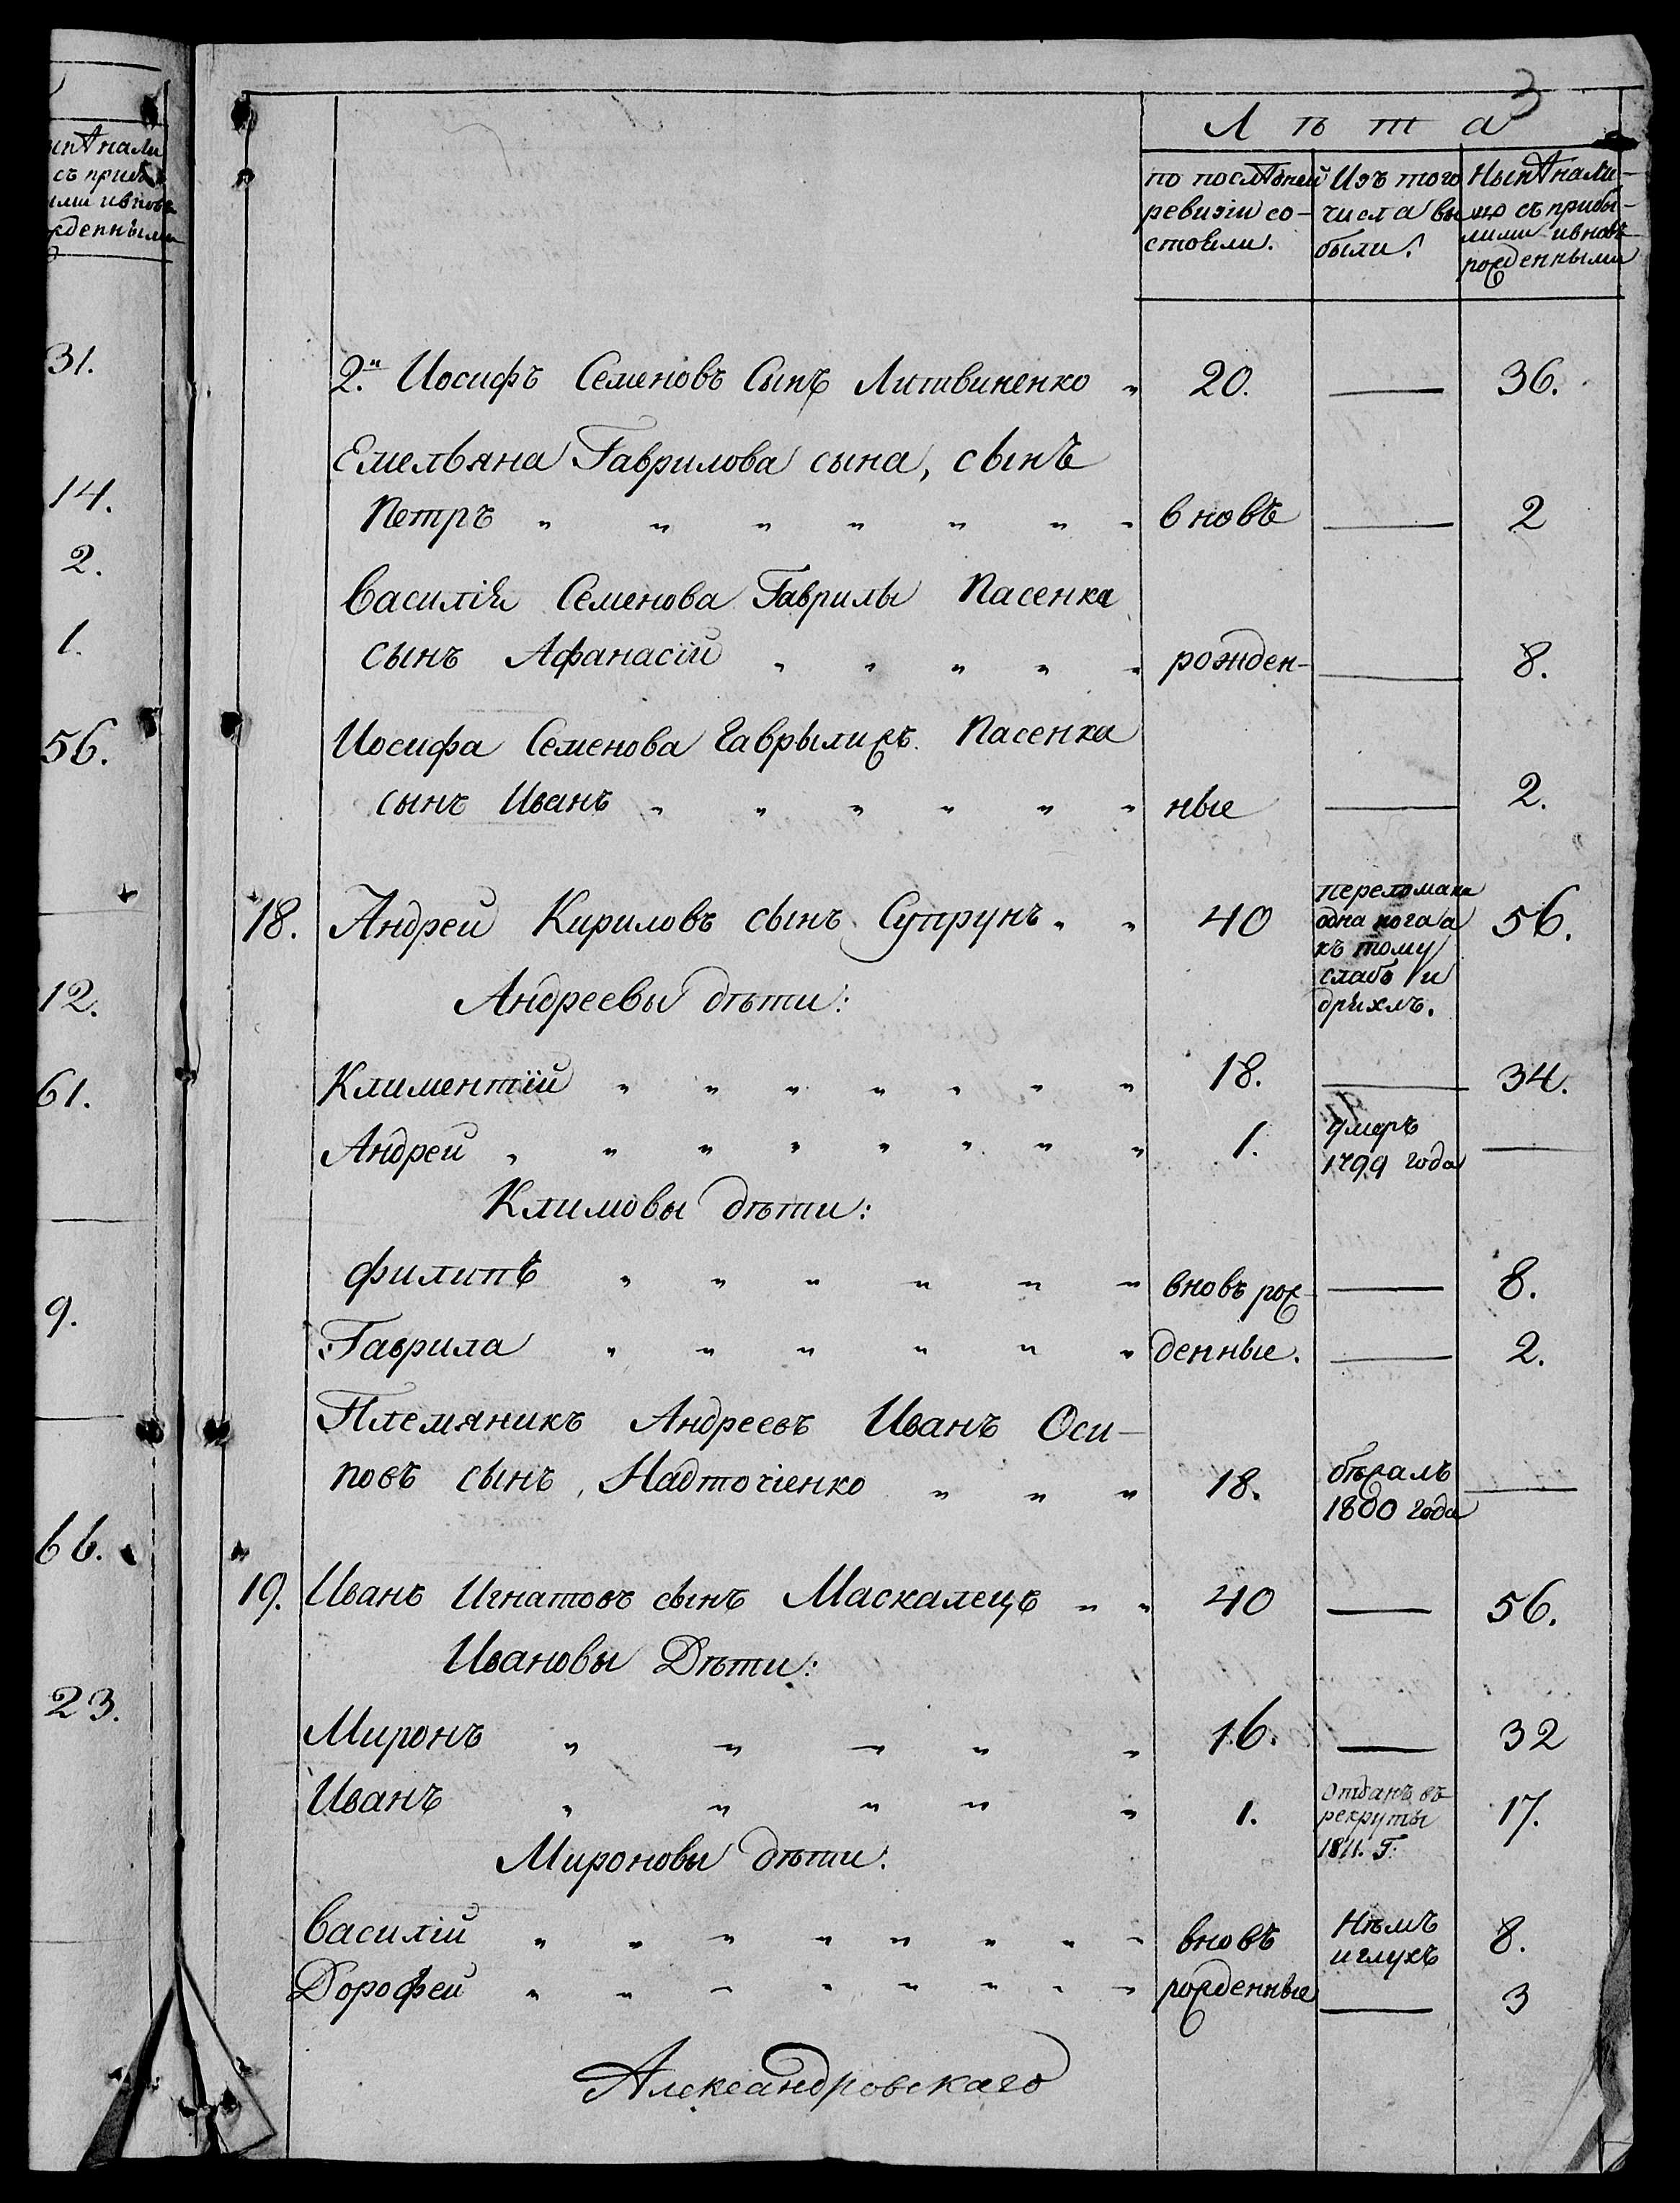 3
Лѣта
по послѣдней ревизіи состояли.
Изъ того числа выбыли.
Нынѣ налицо съ прибылими и вновь рожденными
2.й Иосифъ Семеновъ Сынъ Литвиненко 20. — 36.
Емельяна Гаврилова сына, сынъ
Петръ вновь — 2
Василія Семенова Гаврилы Пасенка
сынъ Афанасій рожден- — 8.
Иосифа Семенова Гаврылихъ Пасенка
сынъ Иванъ ные — 2.
18. Андрей Кириловъ сынъ Супрунъ 40 переломана одна нога а къ тому слабъ и дряхлъ. 56.
Андреевы дѣти:
Климентій 18. — 34.
Андрей 1. умеръ 1799 года —
Климовы дѣти:
Филипъ вновь рож- — 8.
Гаврила денные. — 2.
Племяникъ Андреевъ Иванъ Оси-
повъ сынъ, Надточіенко 18. бѣжалъ 1800 года —
19. Иванъ Игнатовъ сынъ Маскалецъ 40 — 56.
Ивановы Дѣти:
Миронъ 16. — 32
Иванъ 1. Отданъ въ рекруты 1811. Г. 17.
Мироновы дѣти:
Василій вновь Нѣмъ и глухъ 8.
Дорофей рожденные — 3
Александровскаго
31.
14.
2.
1.
56.
12.
61.
9.
66.
23.